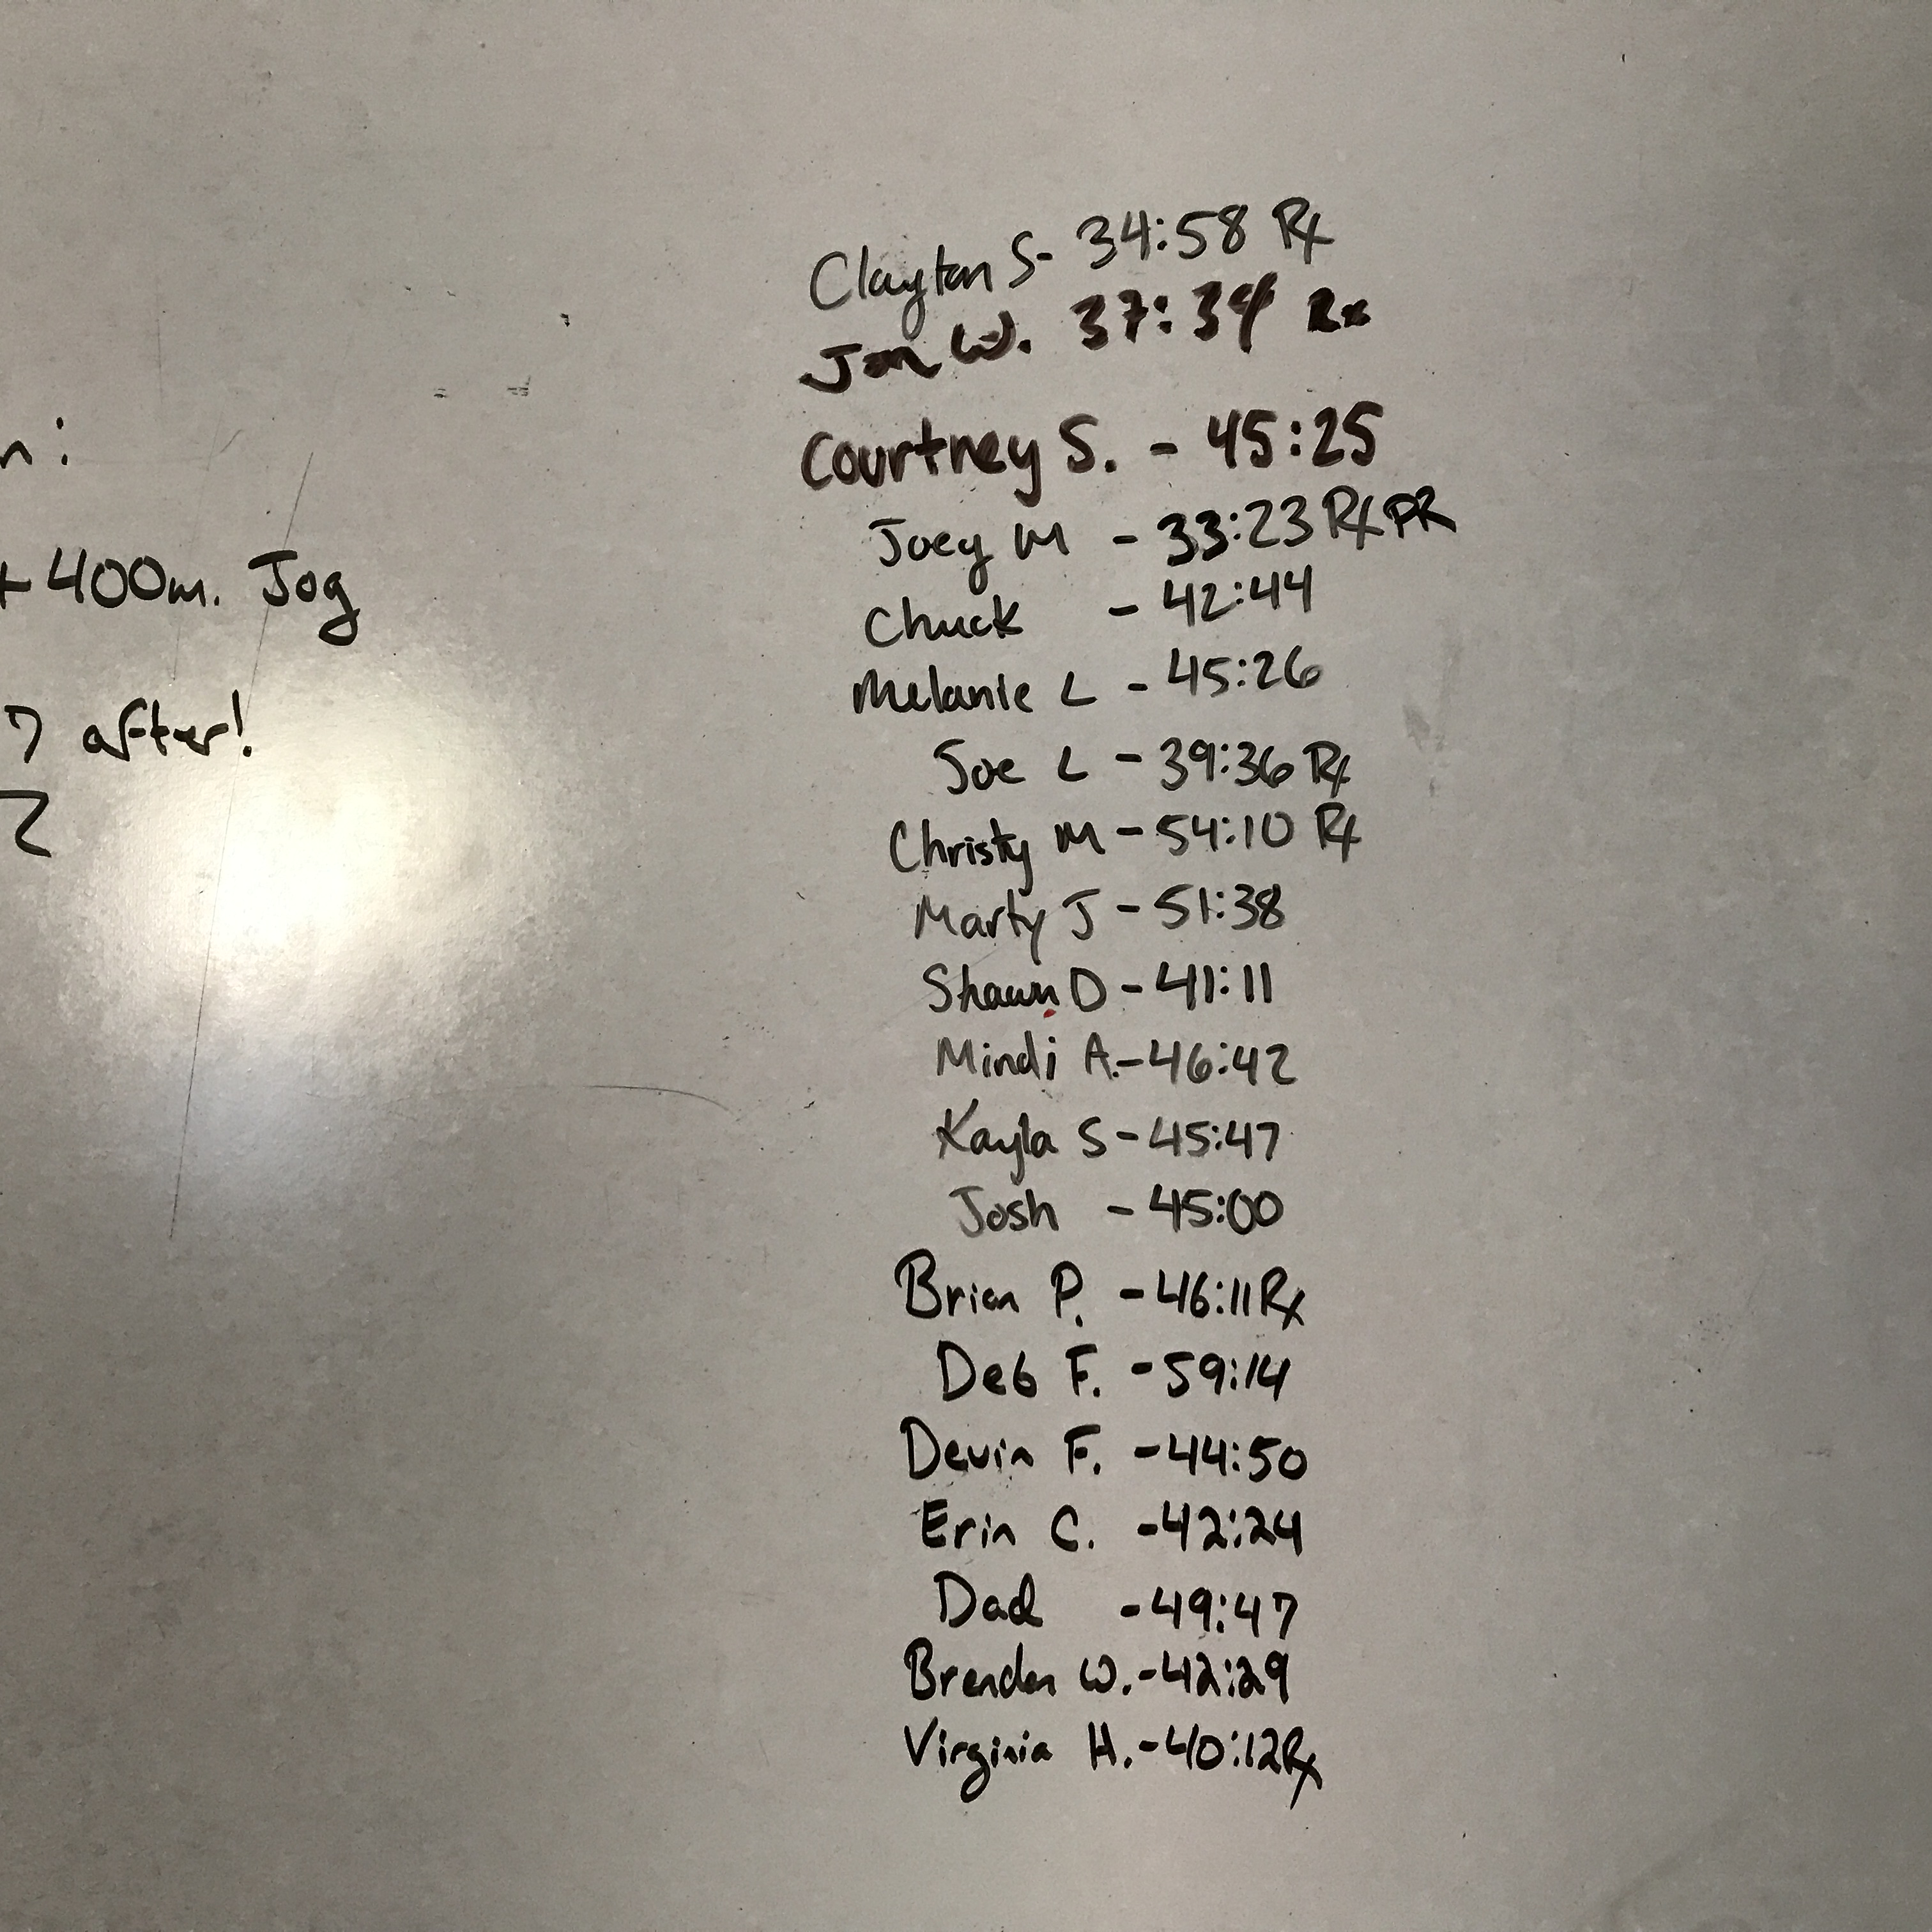 n:
+ 400m. Jog
7 after!
Clayton S- 34:58 Rx
Jon W. 37:34 Rx
Courtney S. - 45:25
Joey M - 33:23 Rx PR
Chuck - 42:44
Melanie L - 45:26
Joe L - 39:36 Rx
Christy M - 54:10 Rx
Marty J - 51:38
Shawn D - 41:11
Mindi A. - 46:42
Kayla S - 45:47
Josh - 45:00
Brian P. - 46:11 Rx
Deb F. - 59:14
Devin F. - 44:50
Erin C. - 42:24
Dad - 49:47
Brendan W. - 42:29
Virginia H. - 40:12 Rx